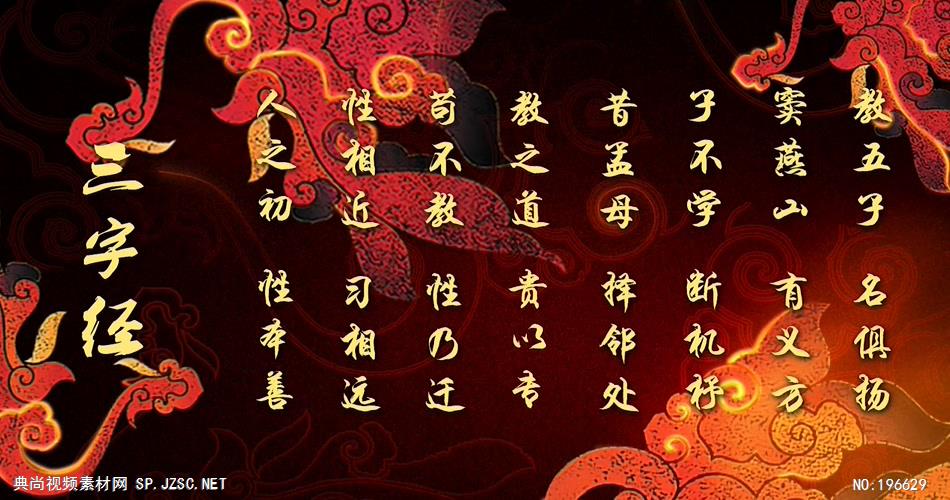 三字经
人之初 性本善
性相近 习相远
苟不教 性乃迁
教之道 贵以专
昔孟母 择邻处
子不学 断机杼
窦燕山 有义方
教五子 名俱扬
典尚视频素材网 SP.JZSC.NET
NO:196629